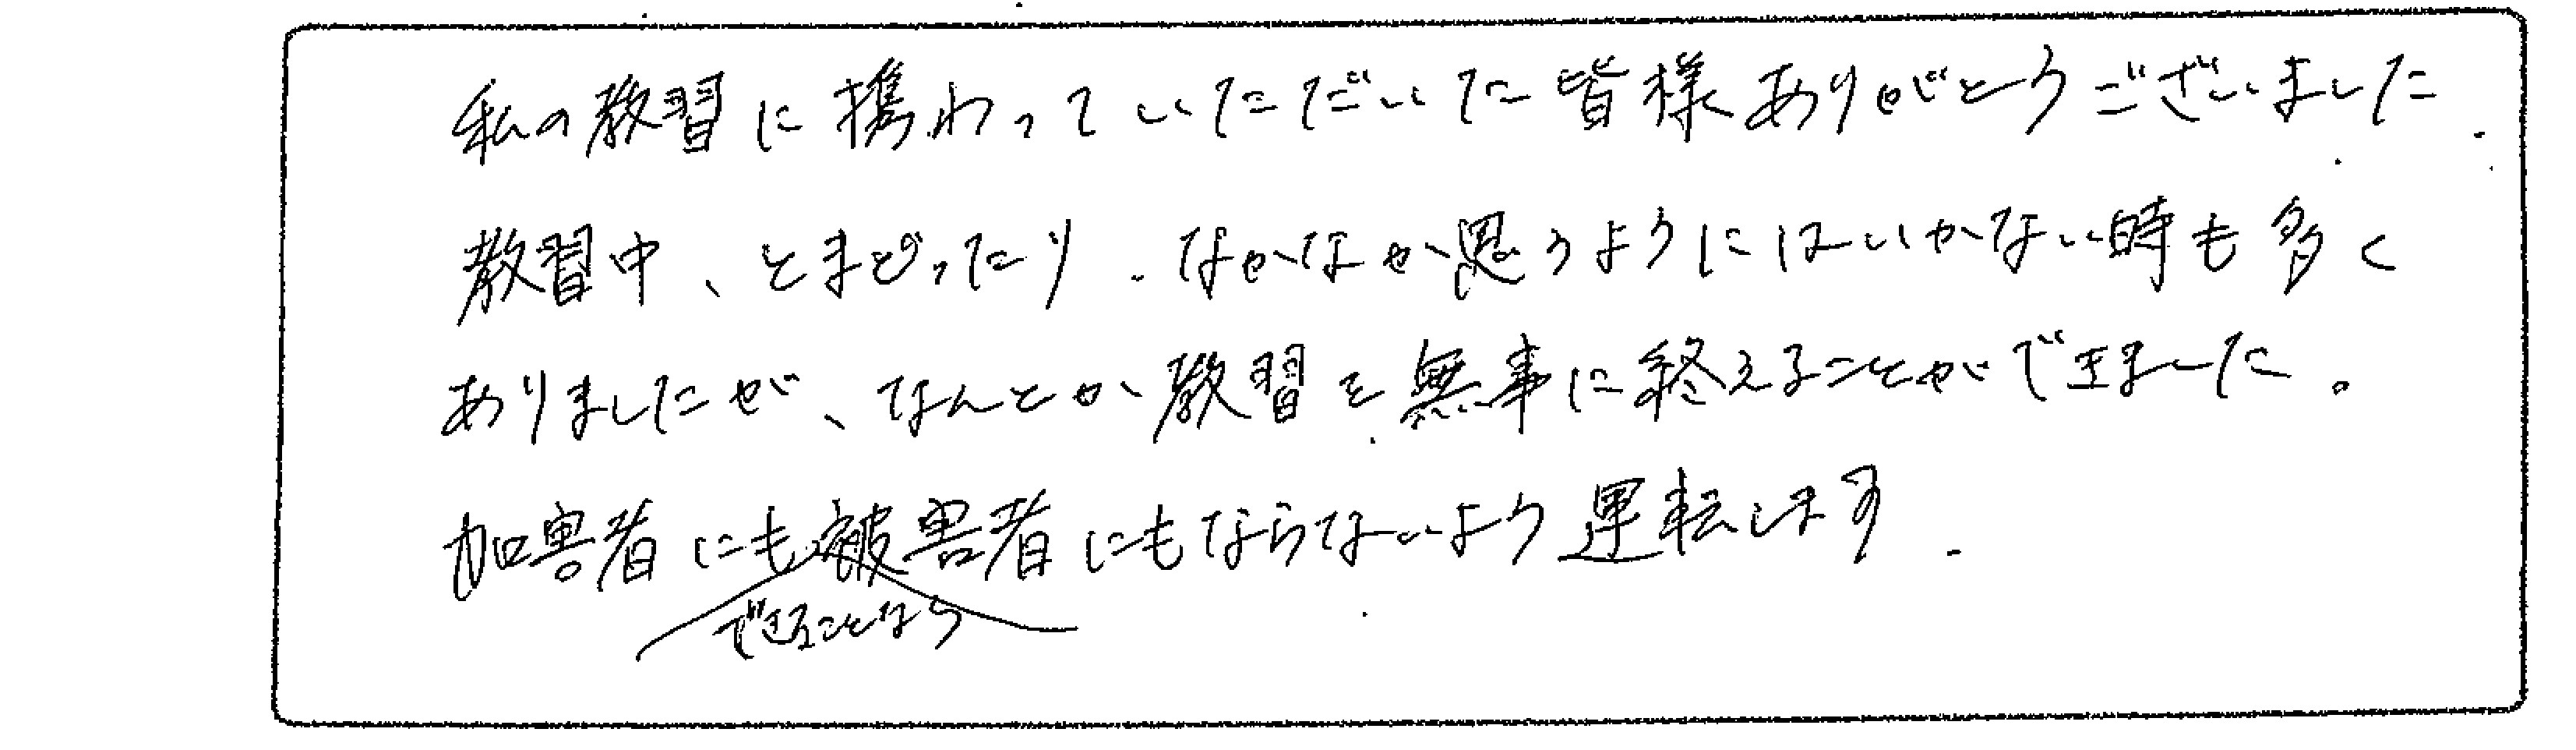 私の教習に携わっていただいた皆様ありがとうございました.
教習中、とまどったり、なかなか思うようにはいかない時も多く
ありましたが、なんとか教習を無事に終えることができました。
加害者にも被害者にもならないよう運転します.
できることなら